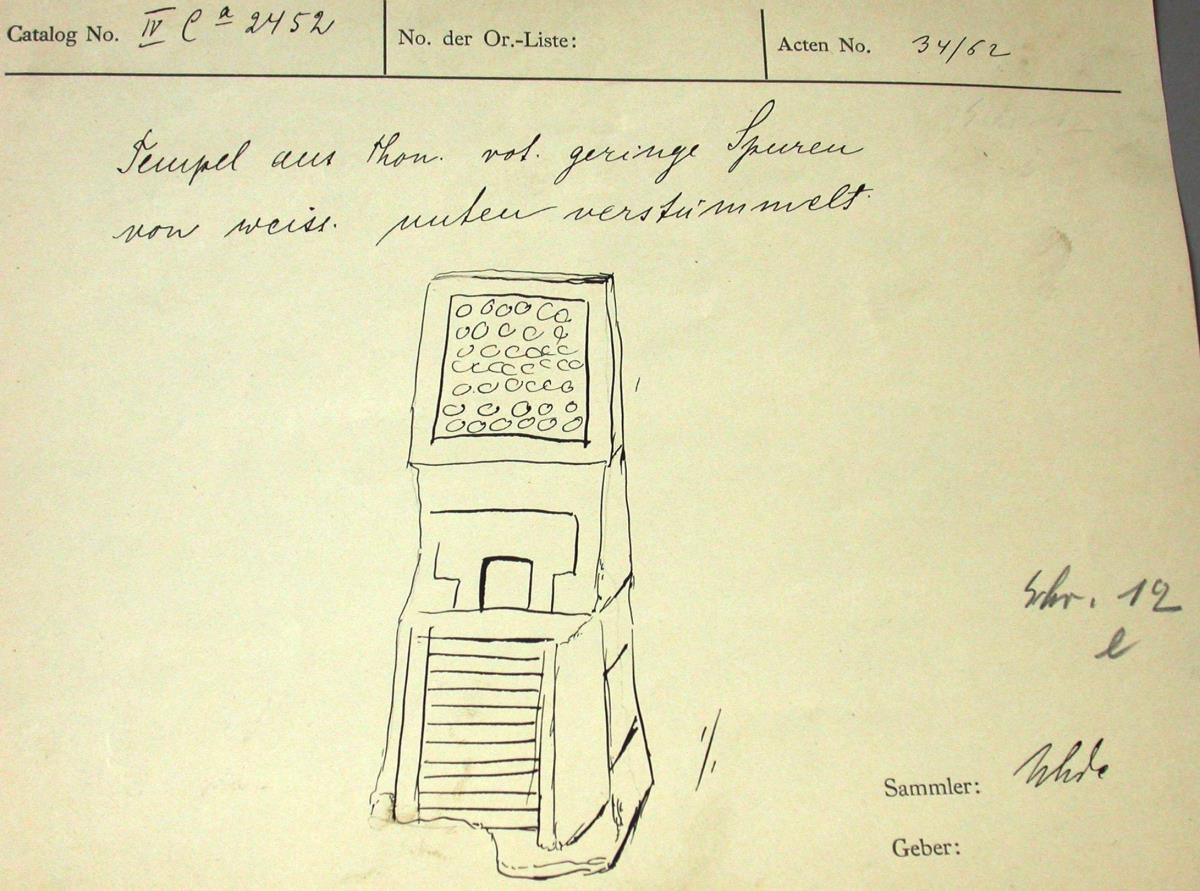 Catalog No. IV Ca 2452
No. der Or.-Liste:
Acten No. 34/62
Tempel aus Thon. rot. geringe Spuren
von weiss. unten verstümmelt.
1/1
Schr. 12
e
Sammler: Uhde
Geber: